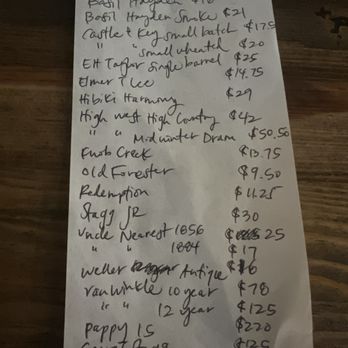 Basil Hayden $18
Basil Hayden Smoke $21
Castle & Key small batch $17.5
" " small wheated $20
EH Taylor Single barrel $25
Elmer T Lee $14.75
Hibiki Harmony $29
High West High Country $42
" " Midwinter Dram $50.50
Knob Creek $13.75
Old Forester $9.50
Redemption $11.25
Stagg JR $30
Uncle Nearest 1856 $25
" " 1884 $17
Weller Antique $16
Van Winkle 10 year $78
" " 12 year $125
Pappy 15 $220
$125